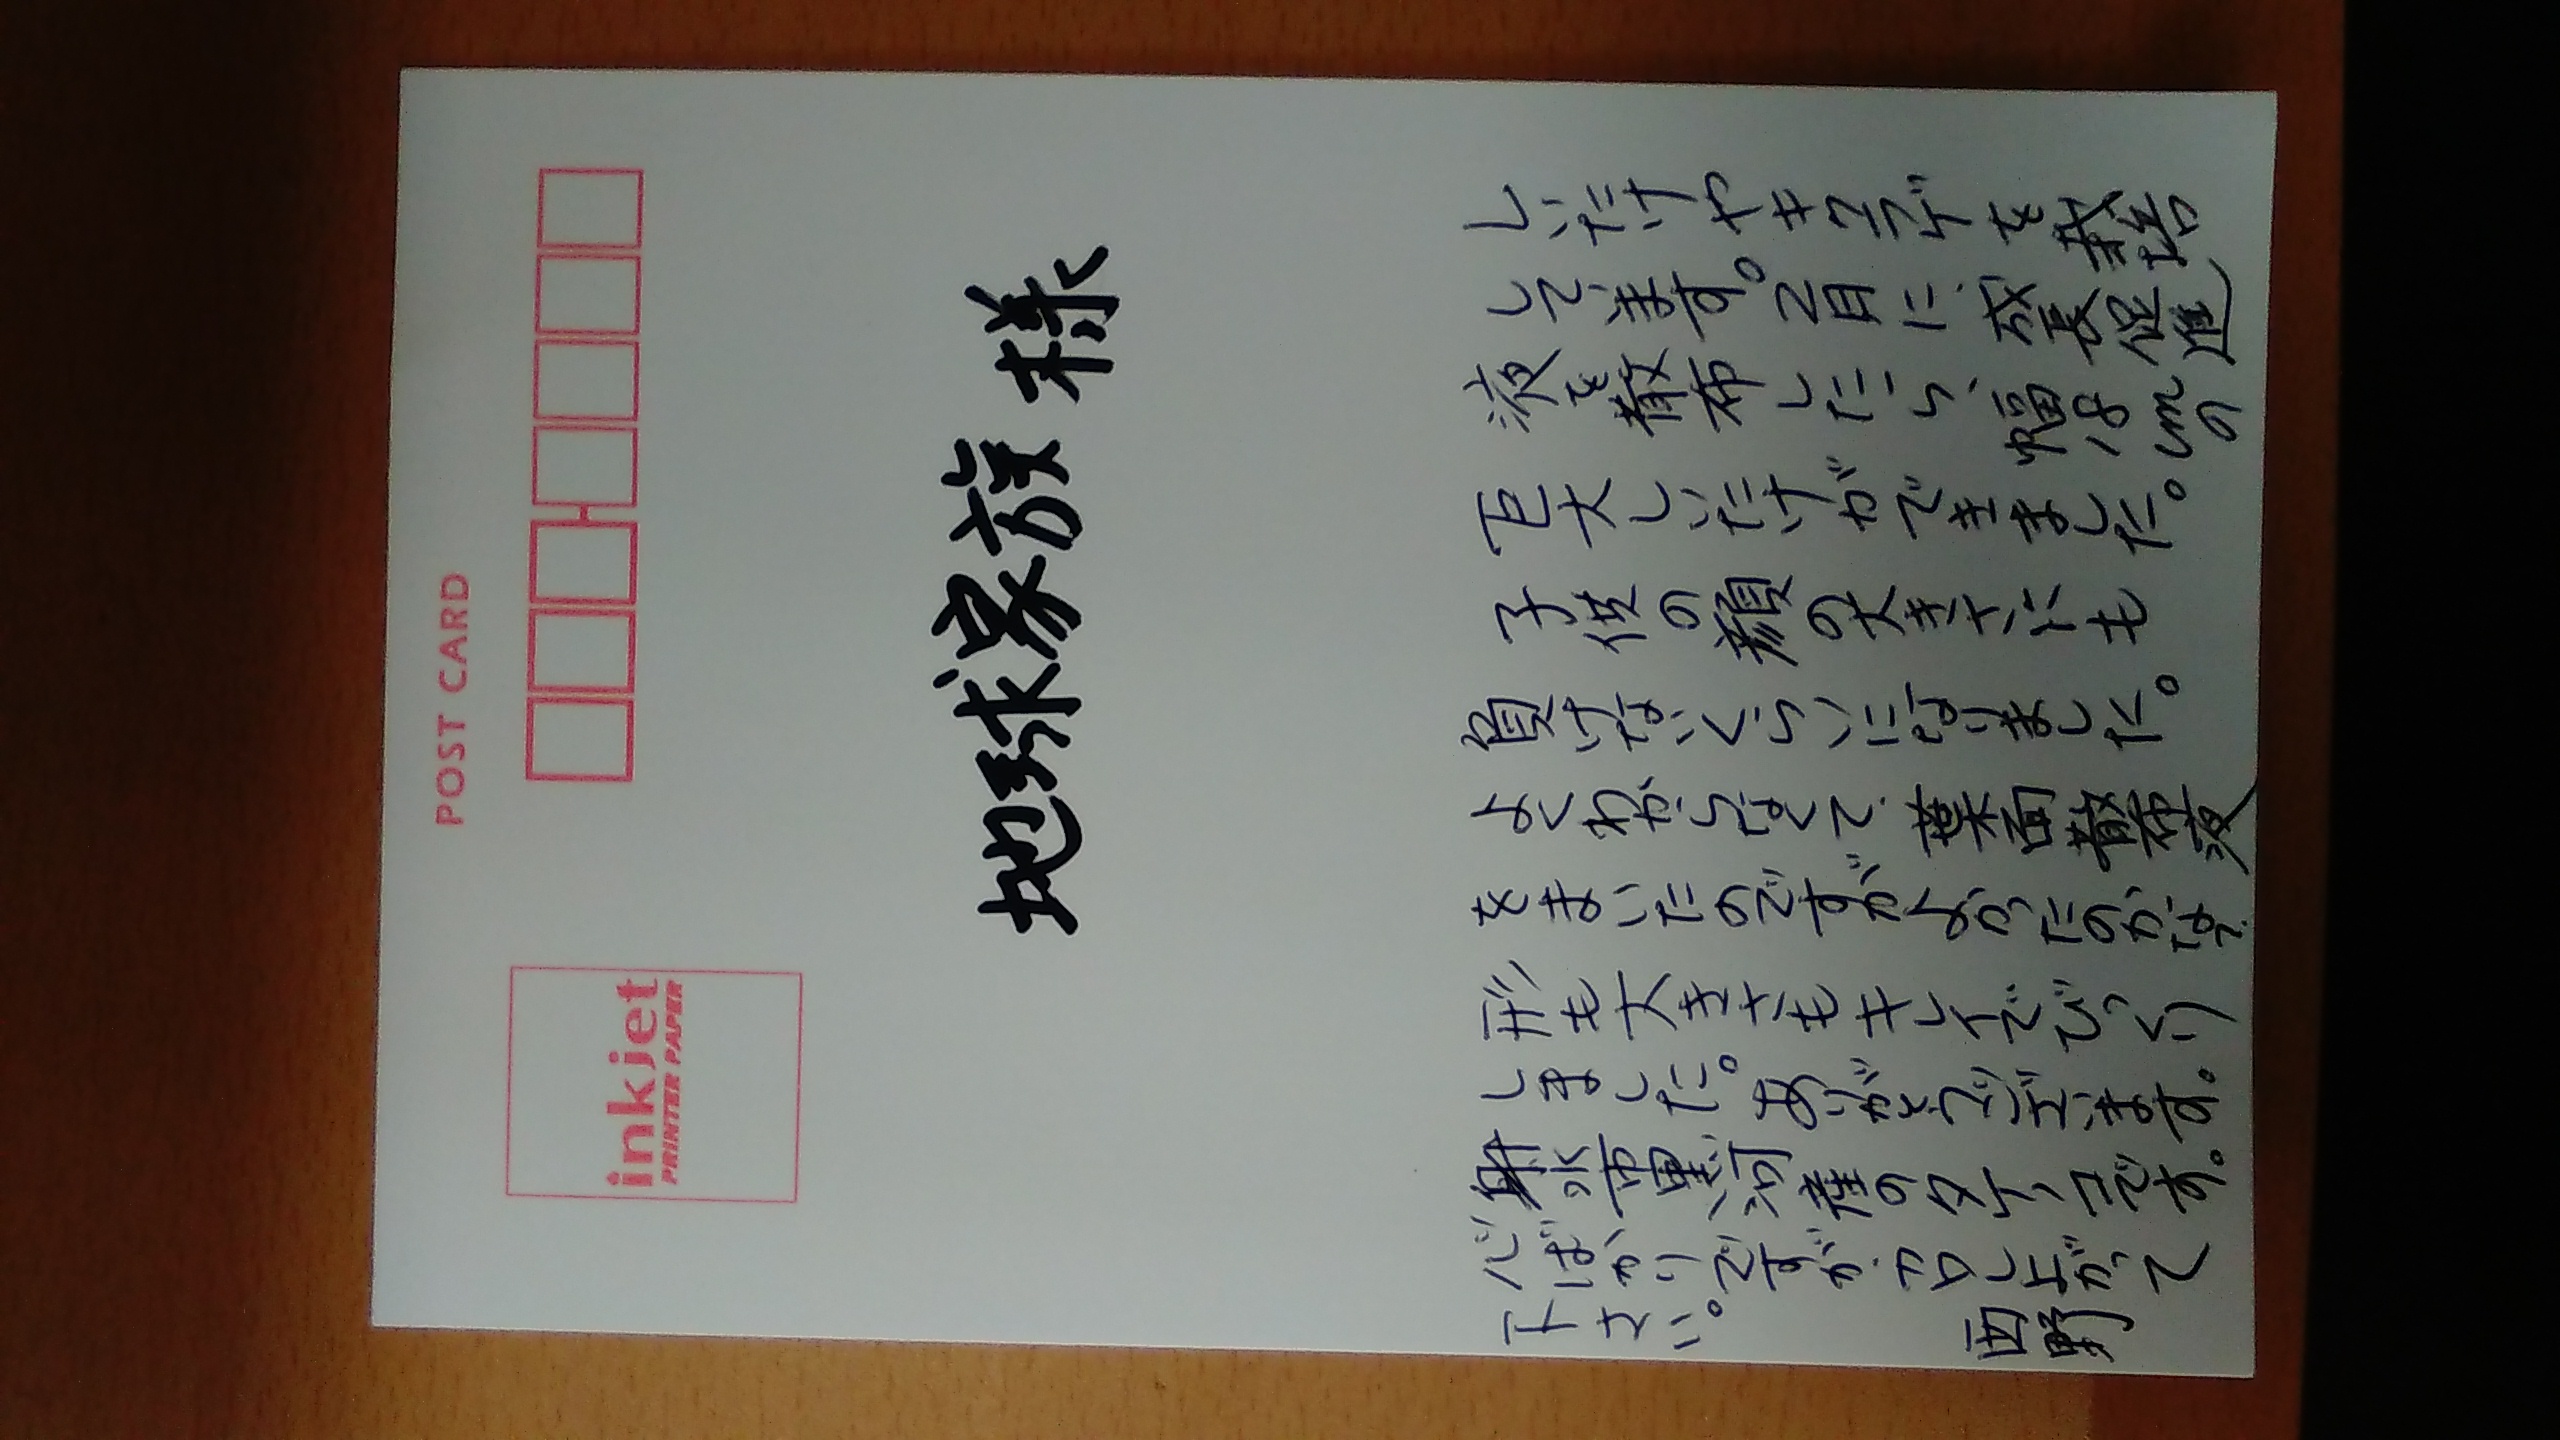 POST CARD
inkjet
PRINTER PAPER
地球家族 様
しいたけやキクラゲを栽培
しています。2月に、成長促進
液を散布したら、幅18cmの
巨大しいたけができました。
子供の顔の大きさにも
負けないくらいになりました。
よくわからなくて、葉面散布液
をまいたのですがよかったのかな?
形も大きさもキレイでびっくり
しました。ありがとうございます。
射水市黒河産のタケノコです。
心ばかりですが、召し上がって
下さい。 西野